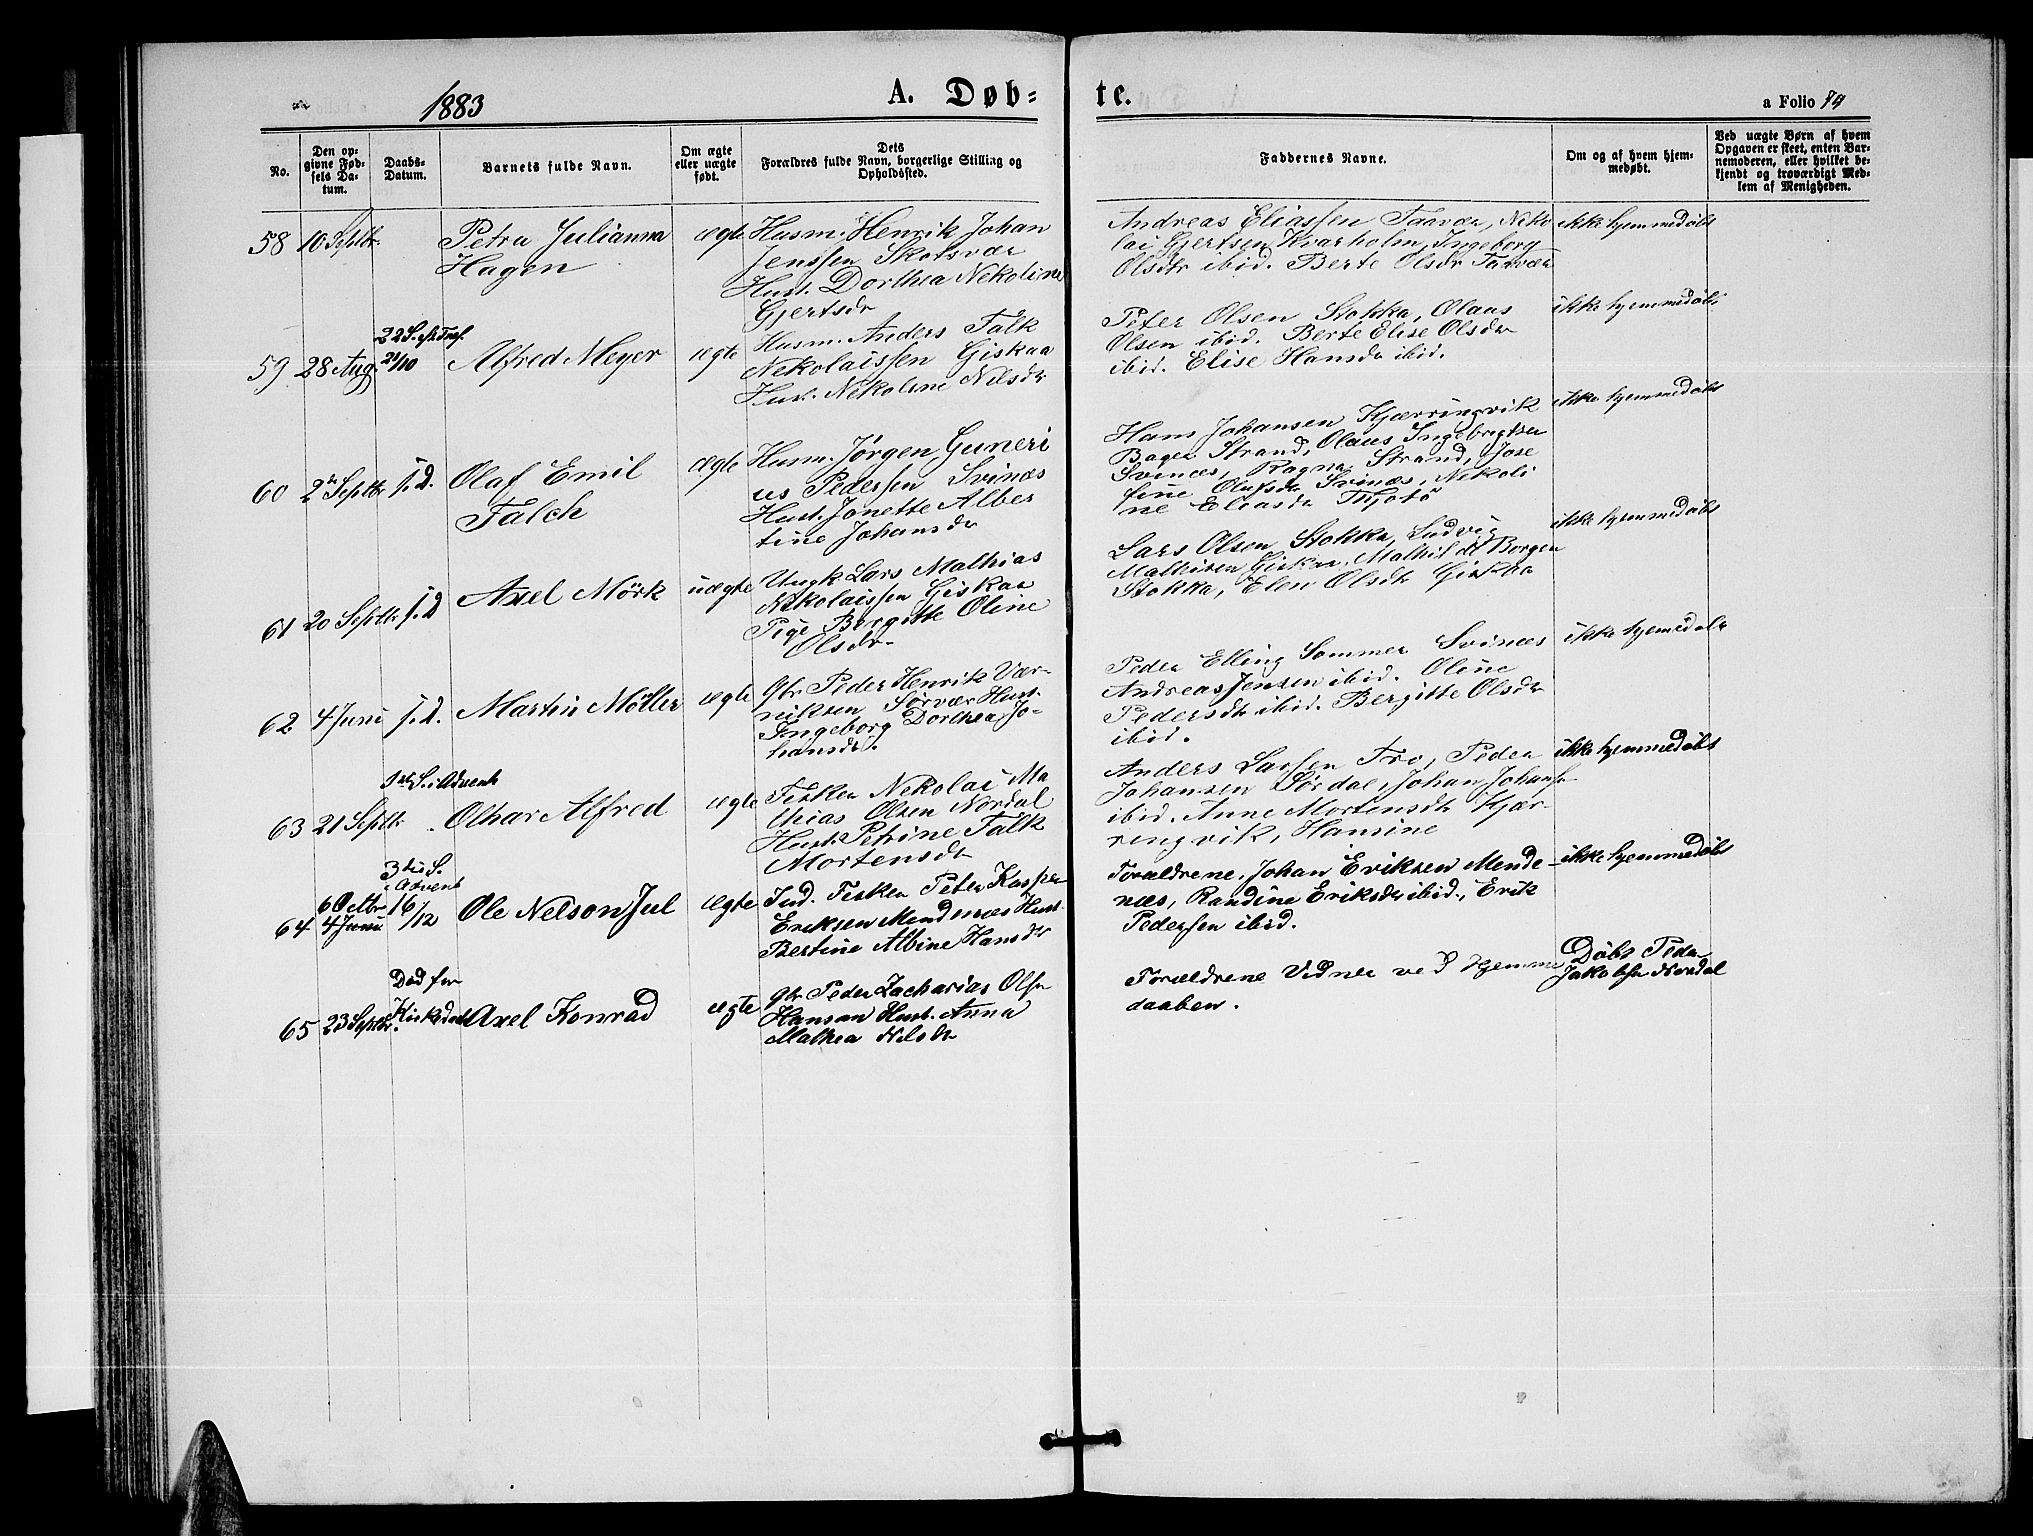 1883
A. Døb-
te.
a Folio
No.
Den op-
givne Fød-
sels Da-
tum.
Daabs-
Datum.
Barnets fulde Navn.
Om ægte
eller uægte
født.
Dets
Forældres fulde Navn, borgerlige Stilling og
Opholdssted.
Faddernes Navne.
Om og af hvem hjem-
medøbt.
Ved uægte Børn af hvem
Opgaven er skeet, enten Bar-
nemoderen, eller hvilket be-
kjendt og troværdigt Med-
lem af Menigheden.
58
10 Septbr.
Petra Julianna
Hagen
ægte
Husm. Henrik Johan
Jenssen Skotsvær
Hust. Dorthea Nekoline
Gjertsdr
Andreas Eliassen Taavær, Neko
lai Gjertsen Kvarholm, Ingeborg
Olsdtr ibid. Berte Olsdr Taavær
ikke hjemmedøbt
59
28 Aug.
22 S. eft. Tref.
21/10
Alfred Meyer
ægte
Husm. Anders Falk
Nekolaissen Giskaa
Hust. Nekoline Nilsdr
Peter Olsen Stokka, Olaus
Olsen ibid. Berte Elise Olsdr
ibid. Elise Hansdr ibid.
ikke hjemmedøbt
60
2 Septbr
s. D.
Olaf Emil
Falch
ægte
Husm. Jörgen Guneri
us Pedersen Svinæs
Hust. Jonette Alber
tine Johansdr
Hans Johansen Kjærringvik
Bager Strand, Olaus Ingebrigtsen
Svinæs, Ragna Strand, Jose
fine Olufsdr Svinæs, Nekoli
ne Eliasdr Thjotö
ikke hjemmedøbt
61
20 Septbr
s. D
Axel Mörk
uægte
Ungk Lars Mathias
Nikolaissen Giskaa
Pige Bergitte Oline
Olsdr.
Lars Olsen Stokka, Ludvig
Mathisen Giskaa, Mathilde Borgen
Stokka, Elen Olsdr Giskaa
ikke hjemmedøbt
62
4 Juni
s. D.
Martin Möller
ægte
Gbr Peder Henrik Vær-
niksen Sörvær Hust.
Ingeborg Dorthea Jo-
hansdr.
Peder Elling Sommer Svinæs
Andreas Jensen ibid. Oline
Pedersdr ibid. Bergitte Olsdr
ibid.
ikke hjemedøbt
63
21 Septbr
1ste S. i Advent
Othar Alfred
ægte
Fisker Nekolai Ma
thias Olsen Nordal
Hust. Petrine Falk
Mortensdr
Anders Larsen Tro, Peder
Johansen Sördal, Johan Johansen
ibid. Anne Mortensdr Kjær
ringvik, Hansine
ikke hjemmedøbt
64
6 Octbr
4 Juni
3die S.
i Advent
16/12
Ole Nelson Jul
ægte
Ind. Fisker Peter Kasper
Eriksen Mendenæs Hust.
Bertine Albine Hansdr
Forældrene, Johan Eriksen Mende-
næs, Randine Eriksdr ibid., Erik
Pedersen ibid.
ikke hjemmedøbt
65
23 Septbr.
Död før
Kirkedaab
Axel Konrad
ægte
Gbr Peder Zacharias Olsen
Hansan Hust. Anna
Mathea Nilsdr
Forældrene Vidner ved Hjemme
daaben.
Döbt Peder
Jakobsen Nordal